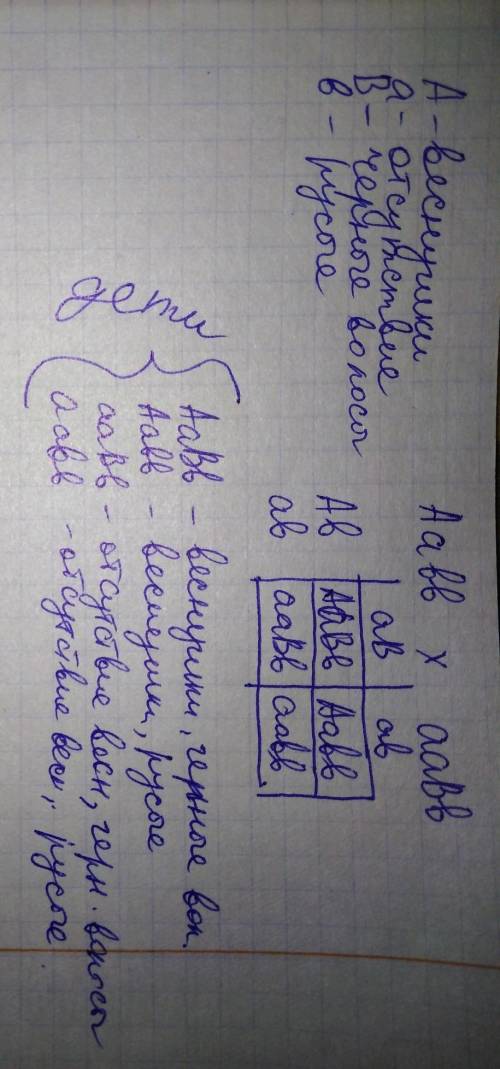 А - веснушки
а - отсутствие
В - черные волосы
в - русые
Аавв х ааВв
аВ ав
Ав АаВв Аавв
ав ааВв аавв
дети
АаВв - веснушки, черные вол.
Аавв - веснушки, русые
ааВв - отсутствие весн, черн. волосы
аавв - отсутствие весн, русые